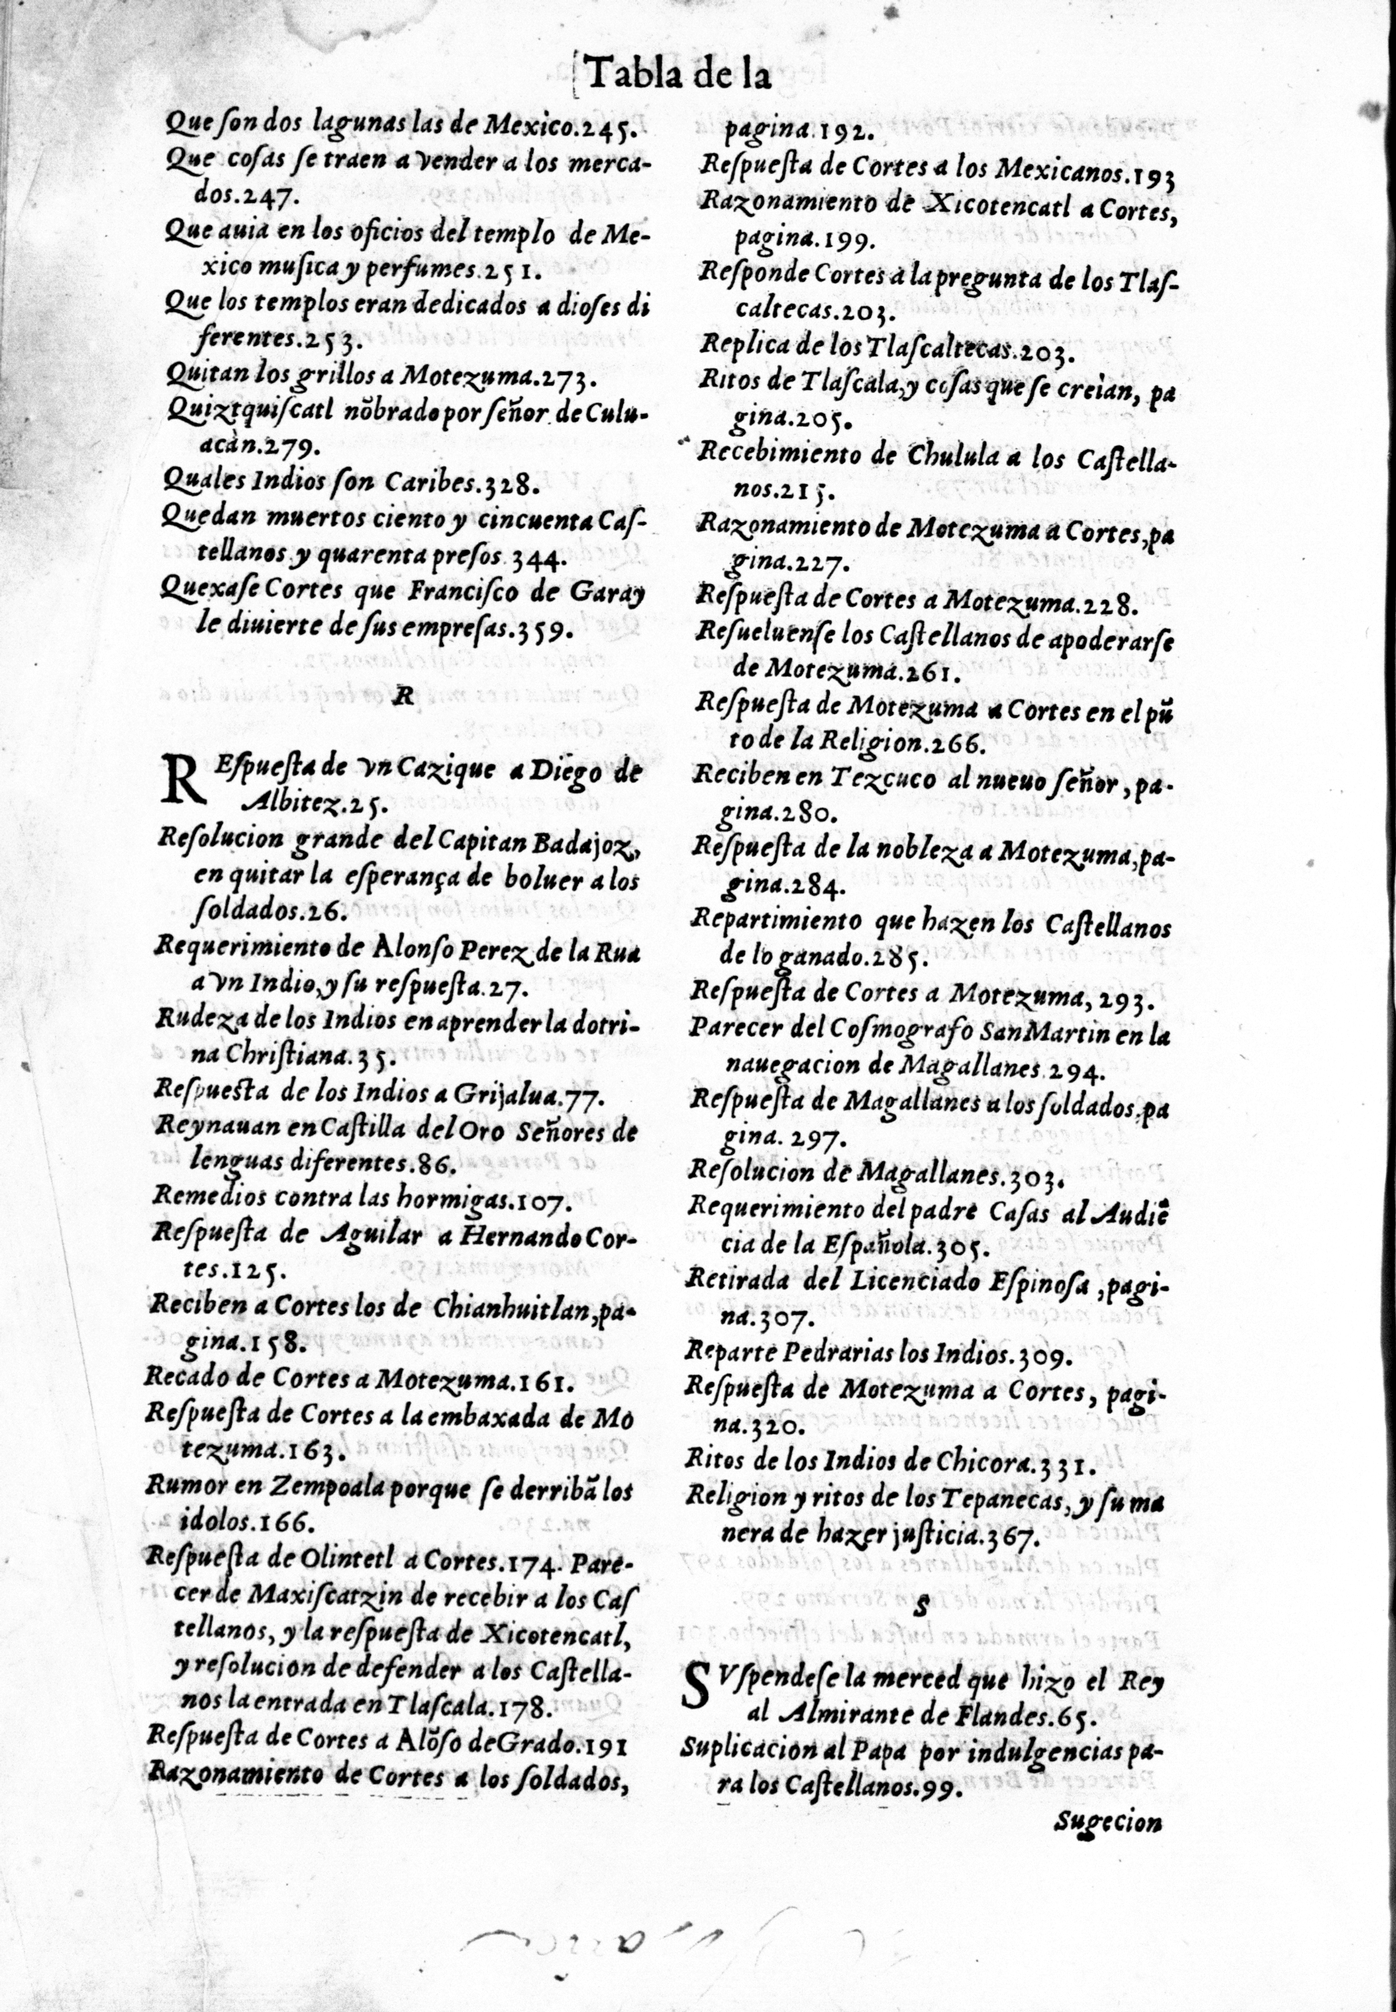 Tabla de la
Que ſon dos lagunas las de Mexico.245.
Que coſas ſe traen a vender a los merca-
dos.247.
Que auia en los oficios del templo de Me-
xico muſica y perfumes.251.
Que los templos eran dedicados a dioſes di
ferentes.253.
Quitan los grillos a Motezuma.273.
Quiztquiſcatl nõbrado por ſeñor de Culu-
acàn.279.
Quales Indios ſon Caribes.328.
Quedan muertos ciento y cincuenta Caſ-
tellanos y quarenta preſos 344.
Quexaſe Cortes que Franciſco de Garay
le diuierte de ſus empreſas.359.
R
REſpueſta de vn Cazique a Diego de
Albitez.25.
Reſolucion grande del Capitan Badajoz,
en quitar la eſperança de boluer a los
ſoldados.26.
Requerimiento de Alonſo Perez de la Rua
a vn Indio, y ſu reſpueſta.27.
Rudeza de los Indios en aprender la dotri-
na Chriſtiana.35.
Reſpueſta de los Indios a Grijalua.77.
Reynauan en Caſtilla del Oro Señores de
lenguas diferentes.86.
Remedios contra las hormigas.107.
Reſpueſta de Aguilar a Hernando Cor-
tes.125.
Reciben a Cortes los de Chianhuitlan, pa-
gina.158.
Recado de Cortes a Motezuma.161.
Reſpueſta de Cortes a la embaxada de Mo
tezuma.163.
Rumor en Zempoala porque ſe derribã los
idolos.166.
Reſpueſta de Olintetl a Cortes.174. Pare-
cer de Maxiſcatzin de recebir a los Caſ
tellanos, y la reſpueſta de Xicotencatl,
y reſolucion de defender a los Caſtella-
nos la entrada en Tlaſcala.178.
Reſpueſta de Cortes a Alõſo de Grado.191
Razonamiento de Cortes a los ſoldados,
pagina.192.
Reſpueſta de Cortes a los Mexicanos.193
Razonamiento de Xicotencatl a Cortes,
pagina.199.
Reſponde Cortes a la pregunta de los Tlaſ-
caltecas.203.
Replica de los Tlaſcaltecas.203.
Ritos de Tlaſcala, y coſas que se creìan, pa
gina.205.
Recebimiento de Chulula a los Caſtella-
nos.215.
Razonamiento de Motezuma a Cortes, pa
gina.227.
Reſpueſta de Cortes a Motezuma.228.
Reſueluenſe los Caſtellanos de apoderarſe
de Motezuma.261.
Reſpueſta de Motezuma a Cortes en el pũ
to de la Religion.266.
Reciben en Tezcuco al nueuo ſeñor, pa-
gina.280.
Reſpueſta de la nobleza a Motezuma, pa-
gina.284.
Repartimiento que hazen los Caſtellanos
de lo ganado.285.
Reſpueſta de Cortes a Motezuma, 293.
Parecer del Coſmografo San Martin en la
nauegacion de Magallanes.294.
Reſpueſta de Magallanes a los ſoldados, pa
gina. 297.
Reſolucion de Magallanes.303.
Requerimiento del padre Caſas al Audiẽ
cia de la Eſpañola.305.
Retirada del Licenciado Eſpinoſa, pagi-
na.307.
Reparte Pedrarias los Indios.309.
Reſpueſta de Motezuma a Cortes, pagi-
na.320.
Ritos de los Indios de Chicora.331.
Religion y ritos de los Tepanecas, y ſu ma
nera de hazer juſticia.367.
S
SVſpendeſe la merced que hizo el Rey
al Almirante de Flandes.65.
Suplicacion al Papa por indulgencias pa-
ra los Caſtellanos.99.
Sugecion